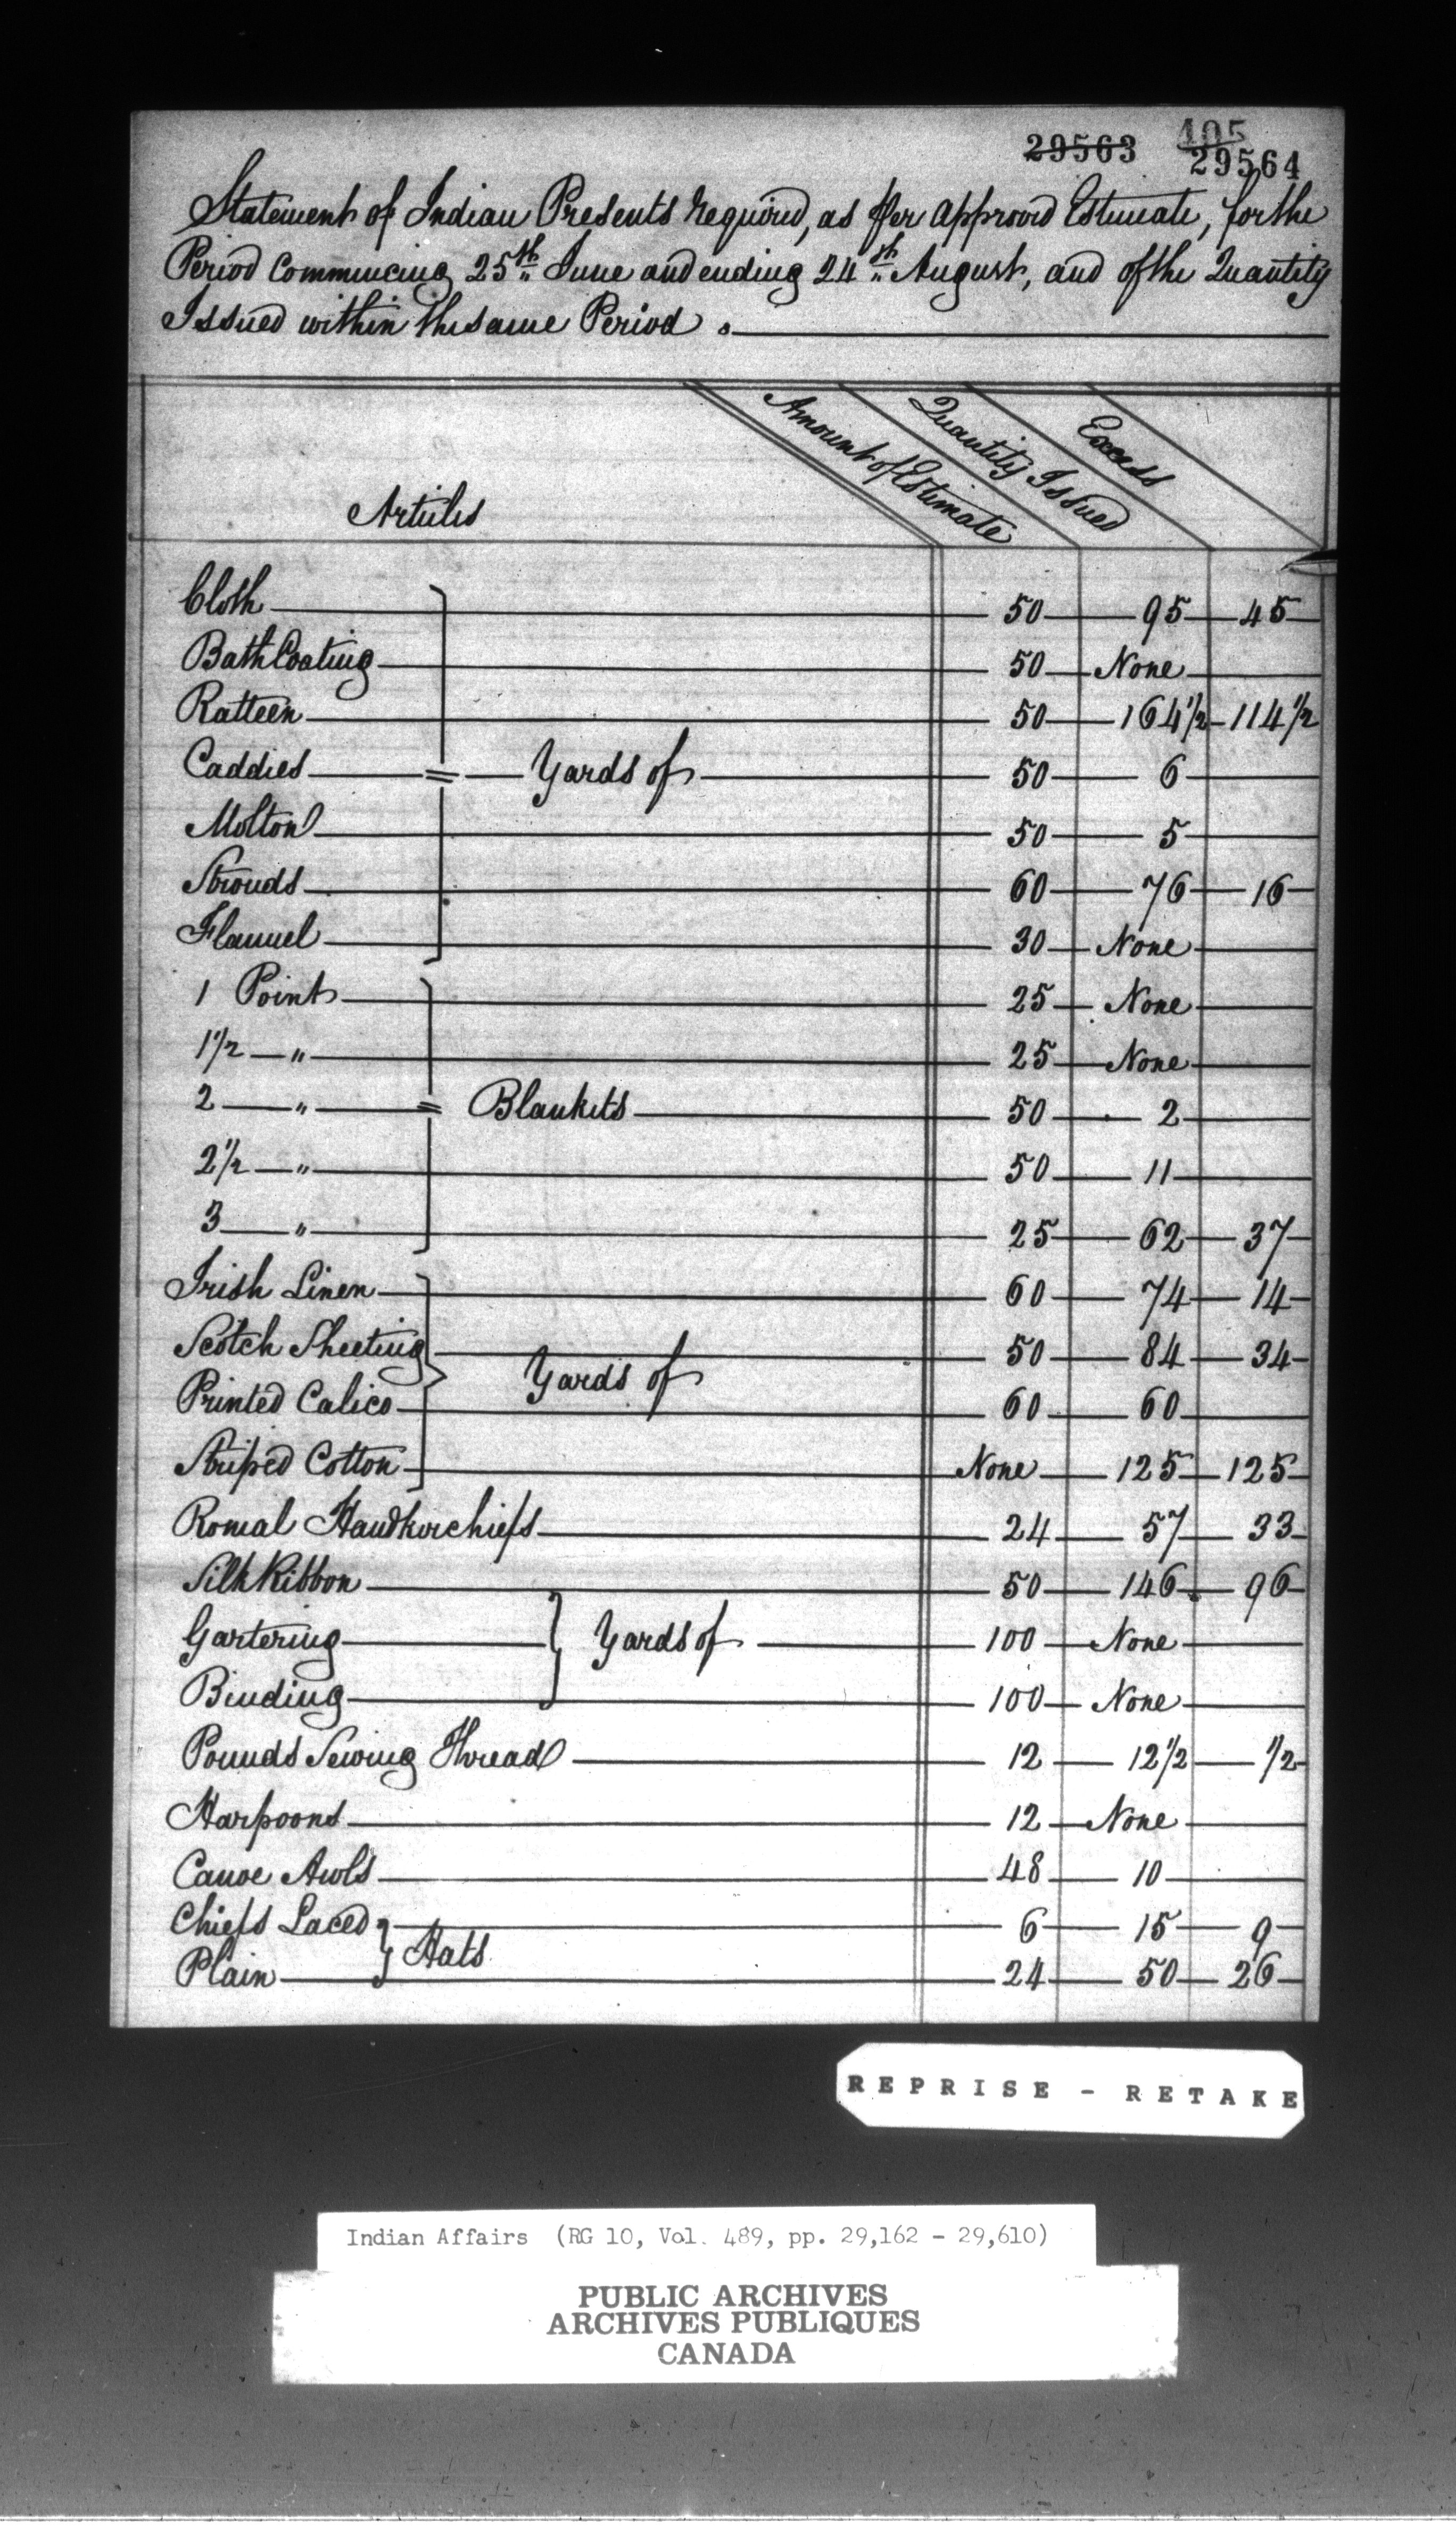 29563 405
29564
Statement of Indian Presents required, as per approved Estimate, for the
Period Commencing 25th June and ending 24th August, and of the Quantity
Issued within the same Period.
Articles Amount of Estimate Quantity Issued Excess
Cloth 50 95 45
Bath Coating 50 None
Ratteen 50 164½ 114½
Caddies = Yards of 50 6
Molton 50 5
Strouds 60 76 16
Flannel 30 None
1 Point 25 None
1½ " 25 None
2 " = Blankets 50 2
2½ " 50 11
3 " 25 62 37
Irish Linen 60 74 14
Scotch Sheeting 50 84 34
Yards of
Printed Calico 60 60
Striped Cotton None 125 125
Romal Handkerchiefs 24 57 33
Silk Ribbon 50 146 96
Gartering } Yards of 100 None
Binding 100 None
Pounds Sewing Thread 12 12½ ½
Harpoons 12 None
Canoe Awls 48 10
Chiefs Laced 6 15 9
} Hats
Plain 24 50 26
REPRISE - RETAKE
Indian Affairs (RG 10, Vol. 489, pp. 29,162 - 29,610)
PUBLIC ARCHIVES
ARCHIVES PUBLIQUES
CANADA